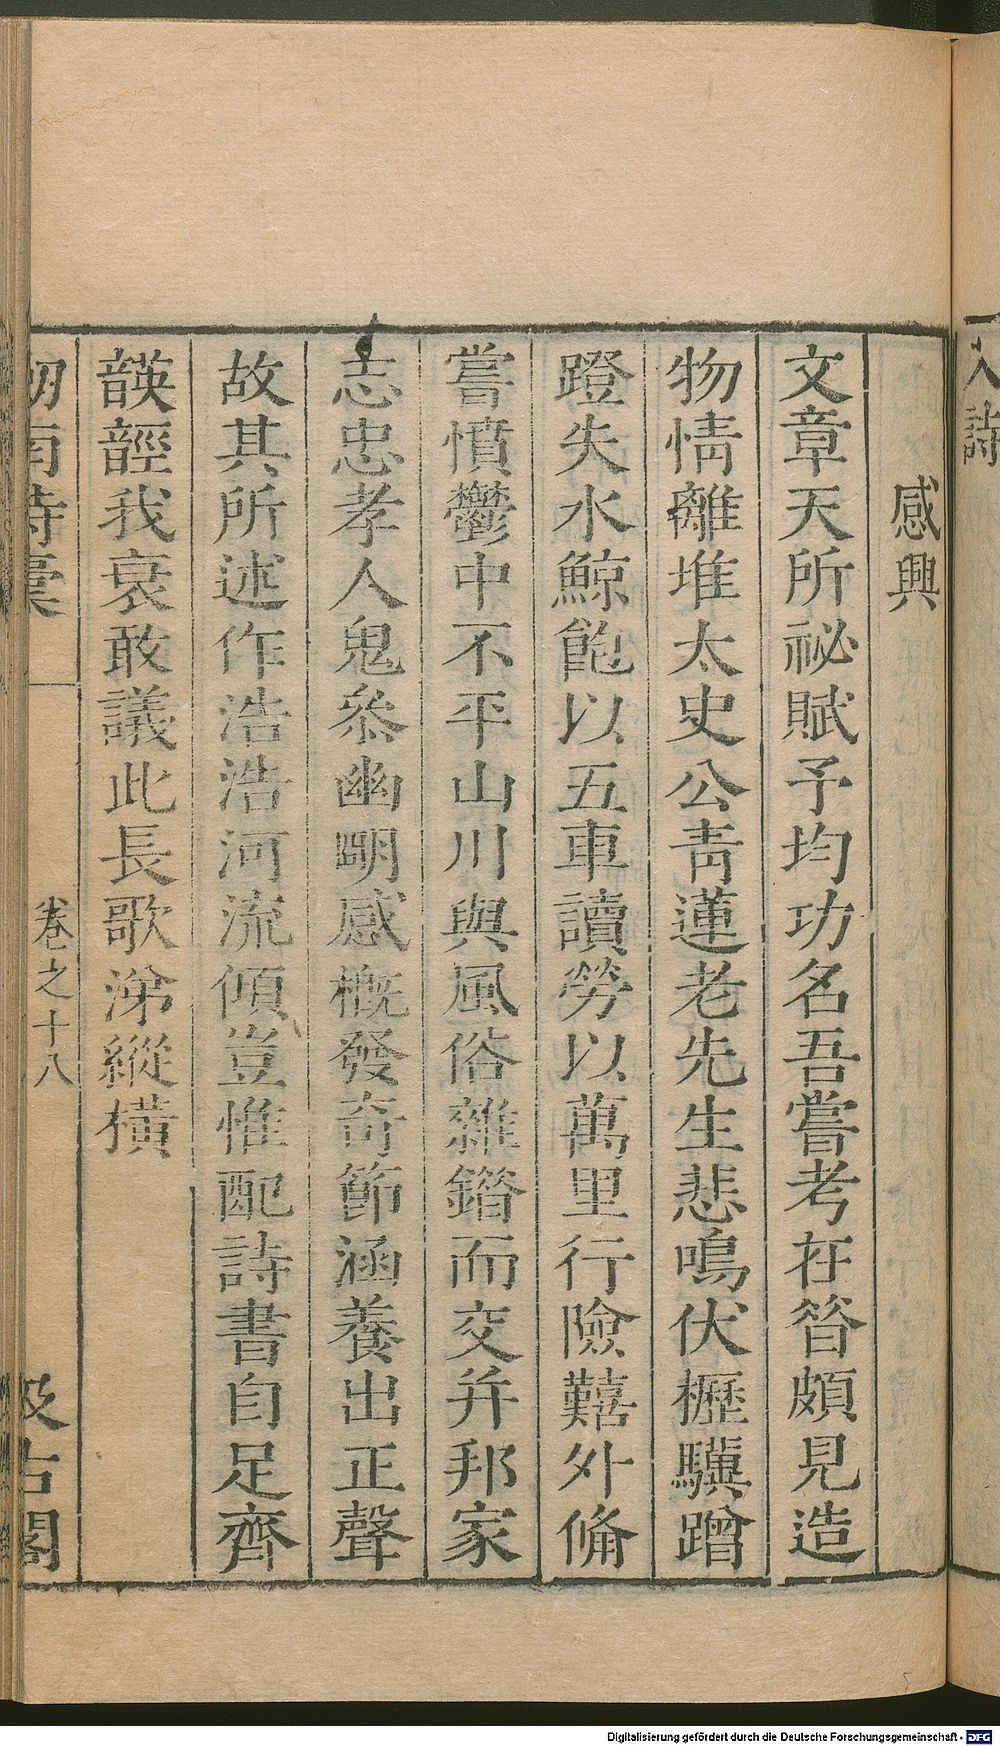 入詩
感興
文章天所祕賦予均功名吾嘗考在昝頗見造
物情離堆太史公靑蓮老先生悲鳴伏櫪驥蹭
蹬失水鯨飽以五車讀勞以萬里行險囏外俻
嘗憤鬱中不平山川與風俗雜錯而交并邦家
志忠孝人鬼叅幽明感槪發奇節涵養出正聲
故其所述作浩浩河流傾豈惟配詩書自足齊
韺䪫我衰敢議此長歌涕縱橫
劒南詩稾
卷之十八
汲古閣
Digitalisierung gefördert durch die Deutsche Forschungsgemeinschaft - DFG